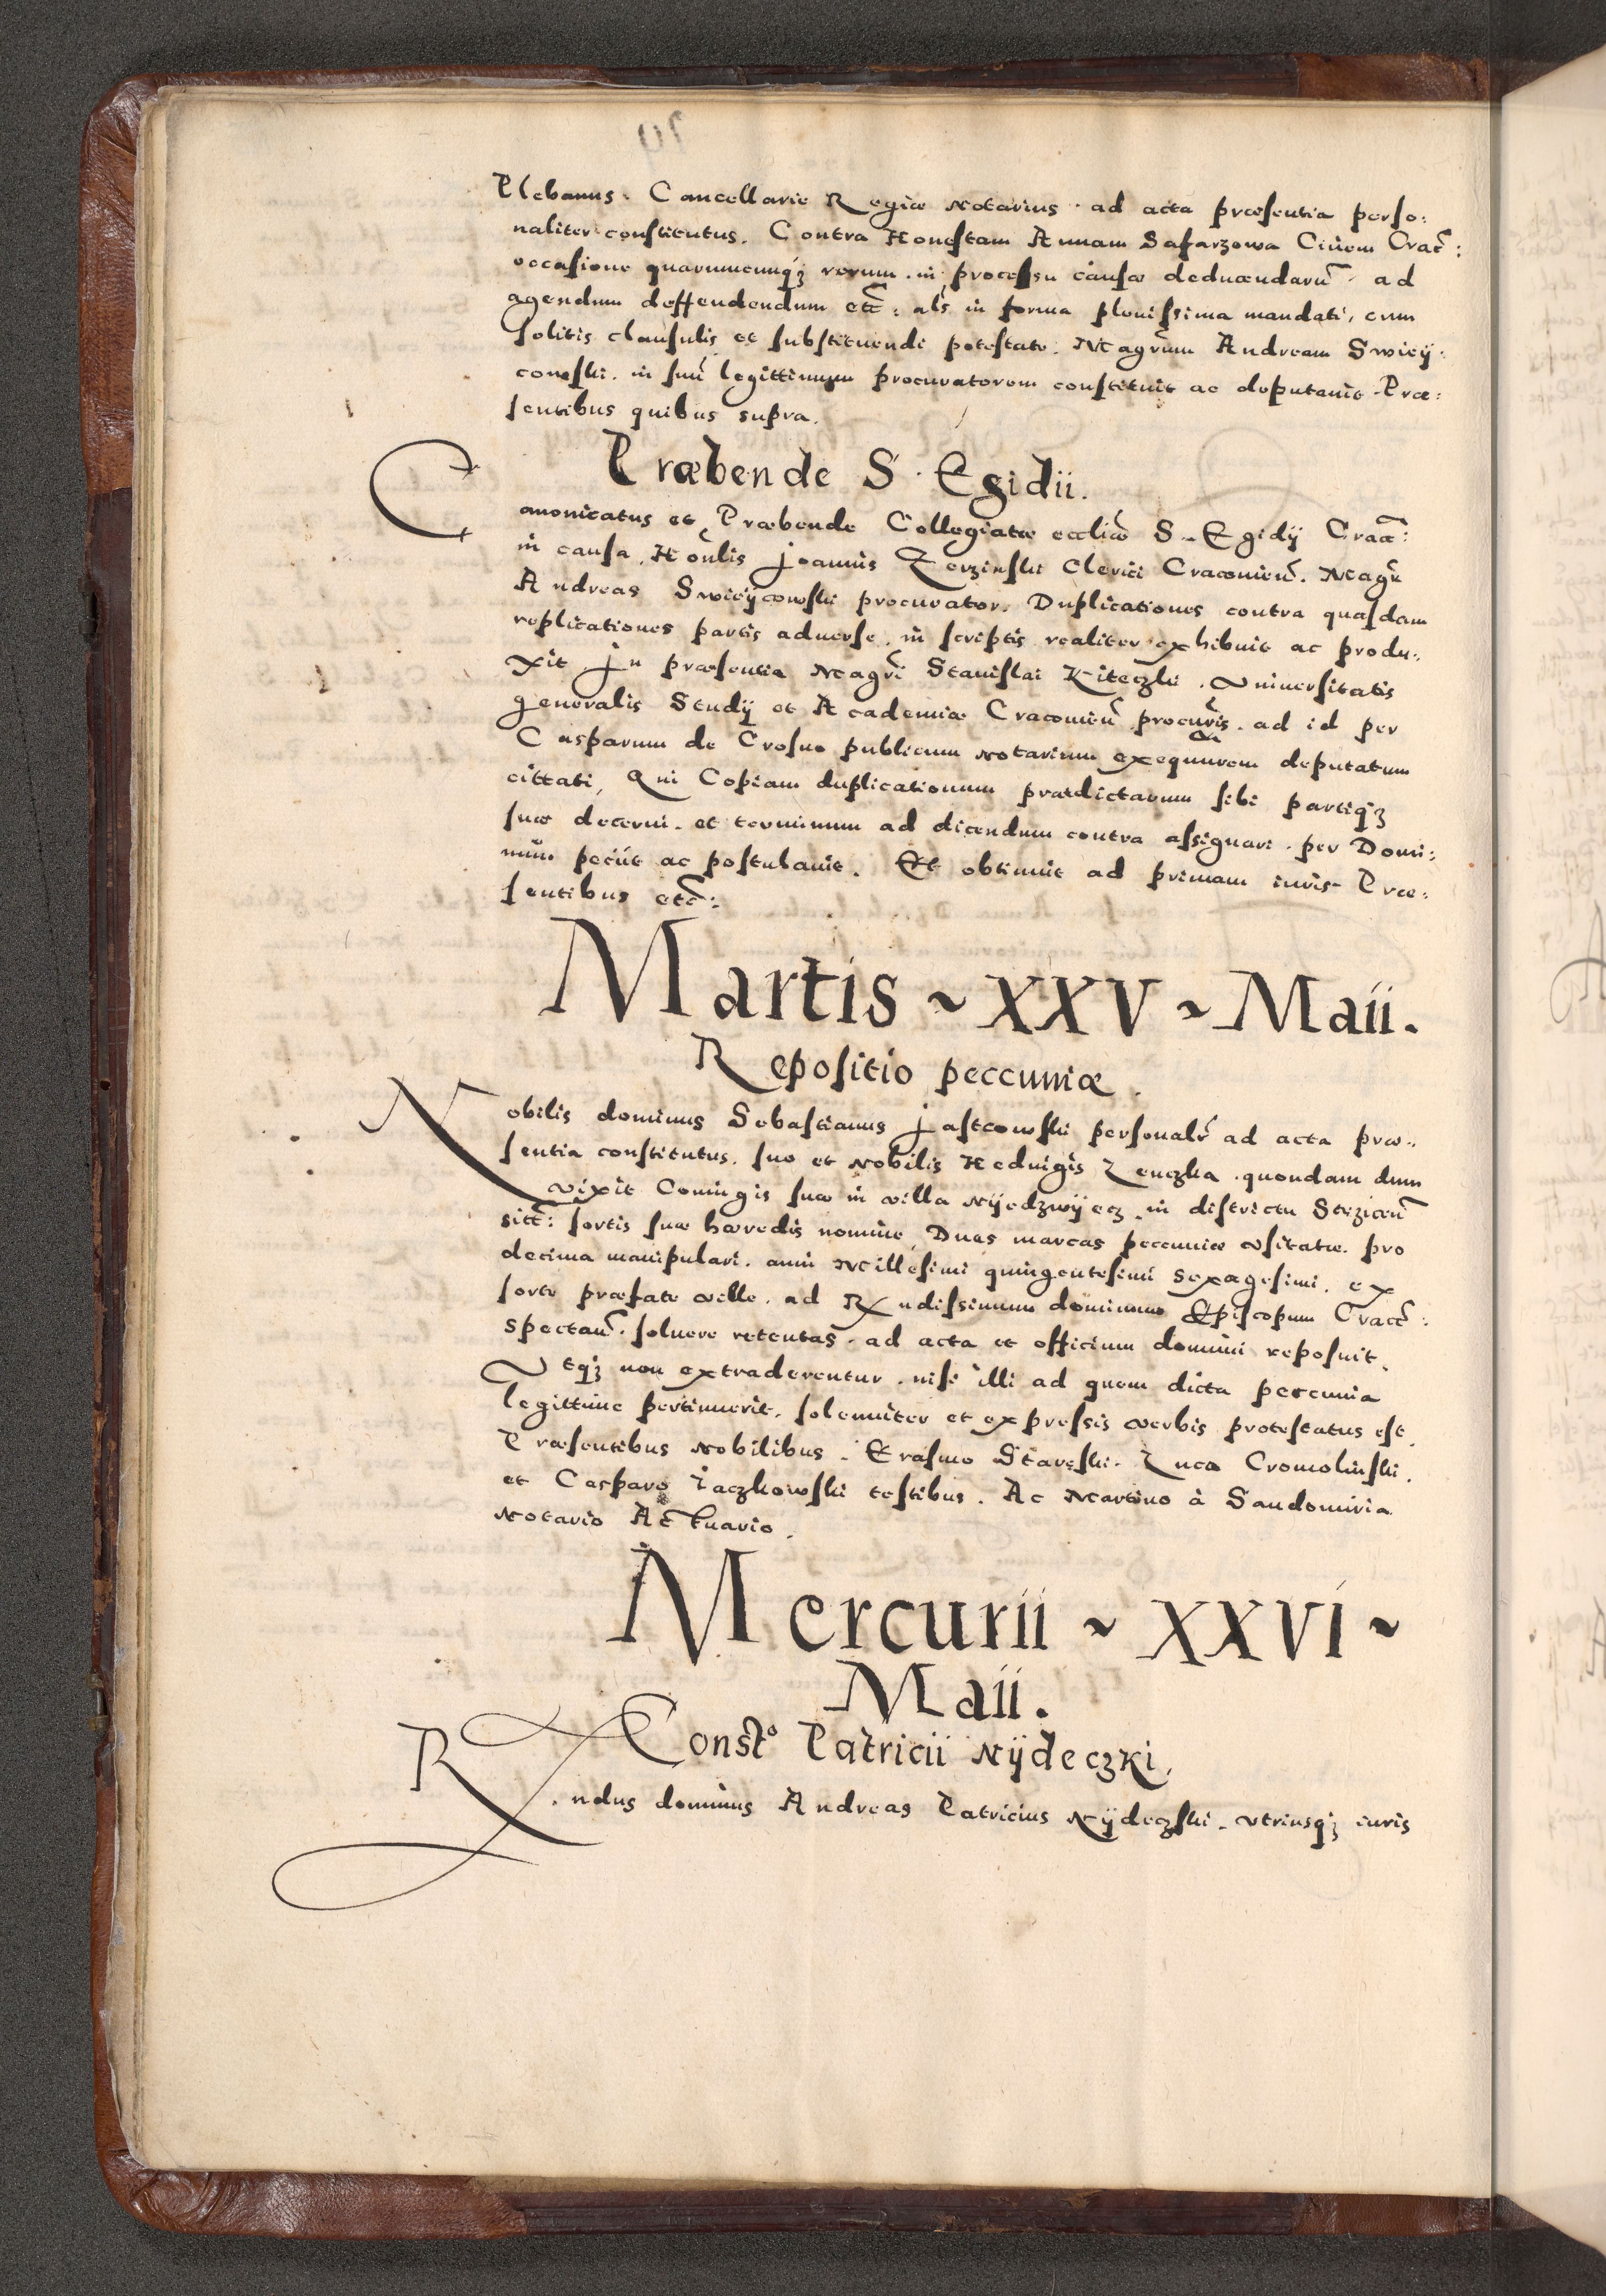 Plebanus. Cancellarie Regiæ Notarius. ad acta præsentia perso:
naliter constitutus. Contra Honestam Annam Safarzowa Ciuem Crac̃:
occasione quarumcunqꝫ rerum. in processu causæ deducendarũ. ad
agendum deffendendum etc̃: als in forma plenissima mandati, cum
solitis clausulis et substituendi potestate. Magr̃um Andream Swiẽÿ:
cowski. in suũ legittimum procuratorem constituit ac deputauit. Præ:
sentibus quibus supra.
Præbende S. Egidii.
Canonicatus et Præbende Collegiatæ eccliæ S. Egidÿ Crac̃:
in causa, Honlis Joannis Zerzinski Clerici Cracouieñ. Magr̃
Andreas Swieÿcowski procurator. Duplicationes contra quasdam
replicationes partis aduerse. in scriptis realiter exhibuit ac produ:
xit. In præsentia Magr̃i Stanislai Kiteczki. Vniuersitatis
generalis Studÿ et Academiæ Cracouieñ procur̃is. ad id per
Casparum de Crosno publicum Notarium exequutorem deputatum
cittati, Qui Copiam duplicationum prædictarum sibi partiqꝫ
suæ decerni. et terminum ad dicendum contra assignari. per Domi:
num. peciit ac postulauit. Et obtinuit ad primam iuris. Præ:
sentibus etc̃:
Martis ~ XXV ~ Maii.
Repositio peccuniæ.
Nobilis dominus Sebastianus Jastcowski personalr̃ ad acta præ:
sentia constitutus. suo et Nobilis Heduigis Zenczka. quondam dum
vixit Coniugis suæ in villa Nÿedzwÿecz. in districtu Stezicen̄
sitt̃: sortis suæ hæredis nomine, Duas marcas peccuniæ vsitatæ. pro
decima manipulari. anni Millesimi quingentesimi sexagesimi. ex
sorte præfate ville. ad Rx̃ndissimum dominum Episcopum Cracc̃:
spectañ. soluere retentas. ad acta et officium domini reposuit.
Vtqꝫ non extraderentur. nisi illi ad quem dicta peccunia
legittime pertinuerit. solenniter et expressis verbis protestatus est.
Præsentibus Nobilibus. Erasmo Stareski. Luca Cromolinski.
et Casparo Zaczkowski testibus. Ac Martino à Sandomiria
Notario Actuario.
Mercurii ~ XXVI ~
Maii.
Const͠o Patricii Nÿdeczki.
Rndus dominus Andreas Patricius Nÿdeczki. vtriusqꝫ iuris